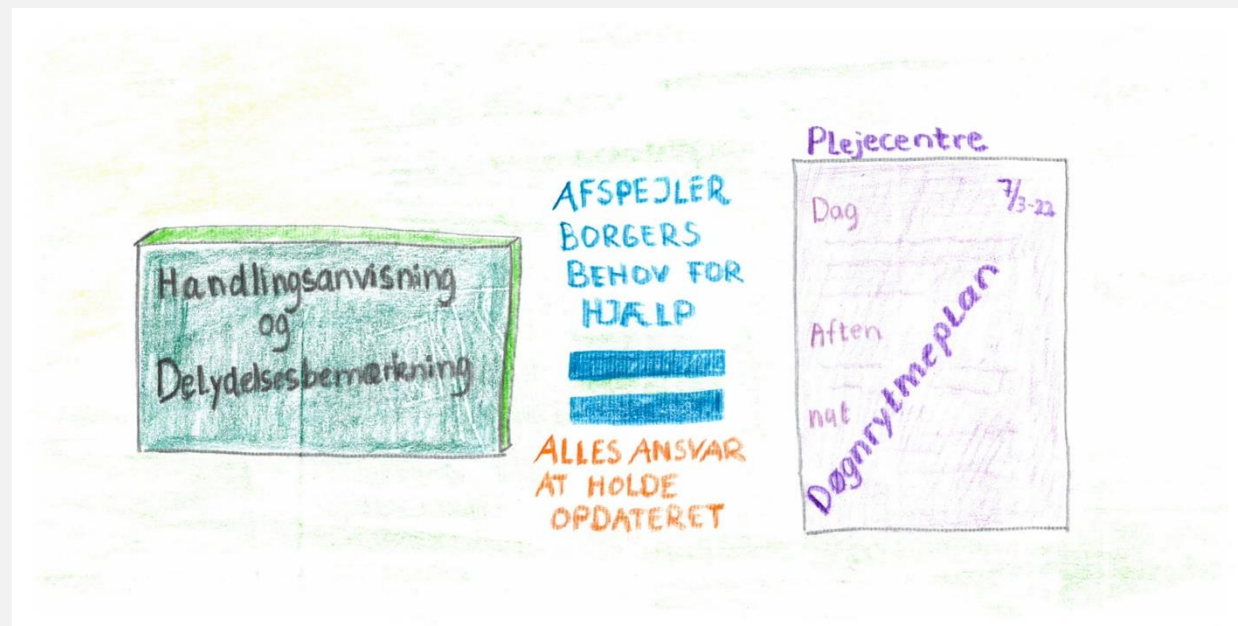 Handlingsanvisning
og
Delydelsesbemærkning
AFSPEJLER
BORGERS
BEHOV FOR
HJÆLP
ALLES ANSVAR
AT HOLDE
OPDATERET
Plejecentre
7/3-22
Dag
Aften
nat
Døgnrytmeplan